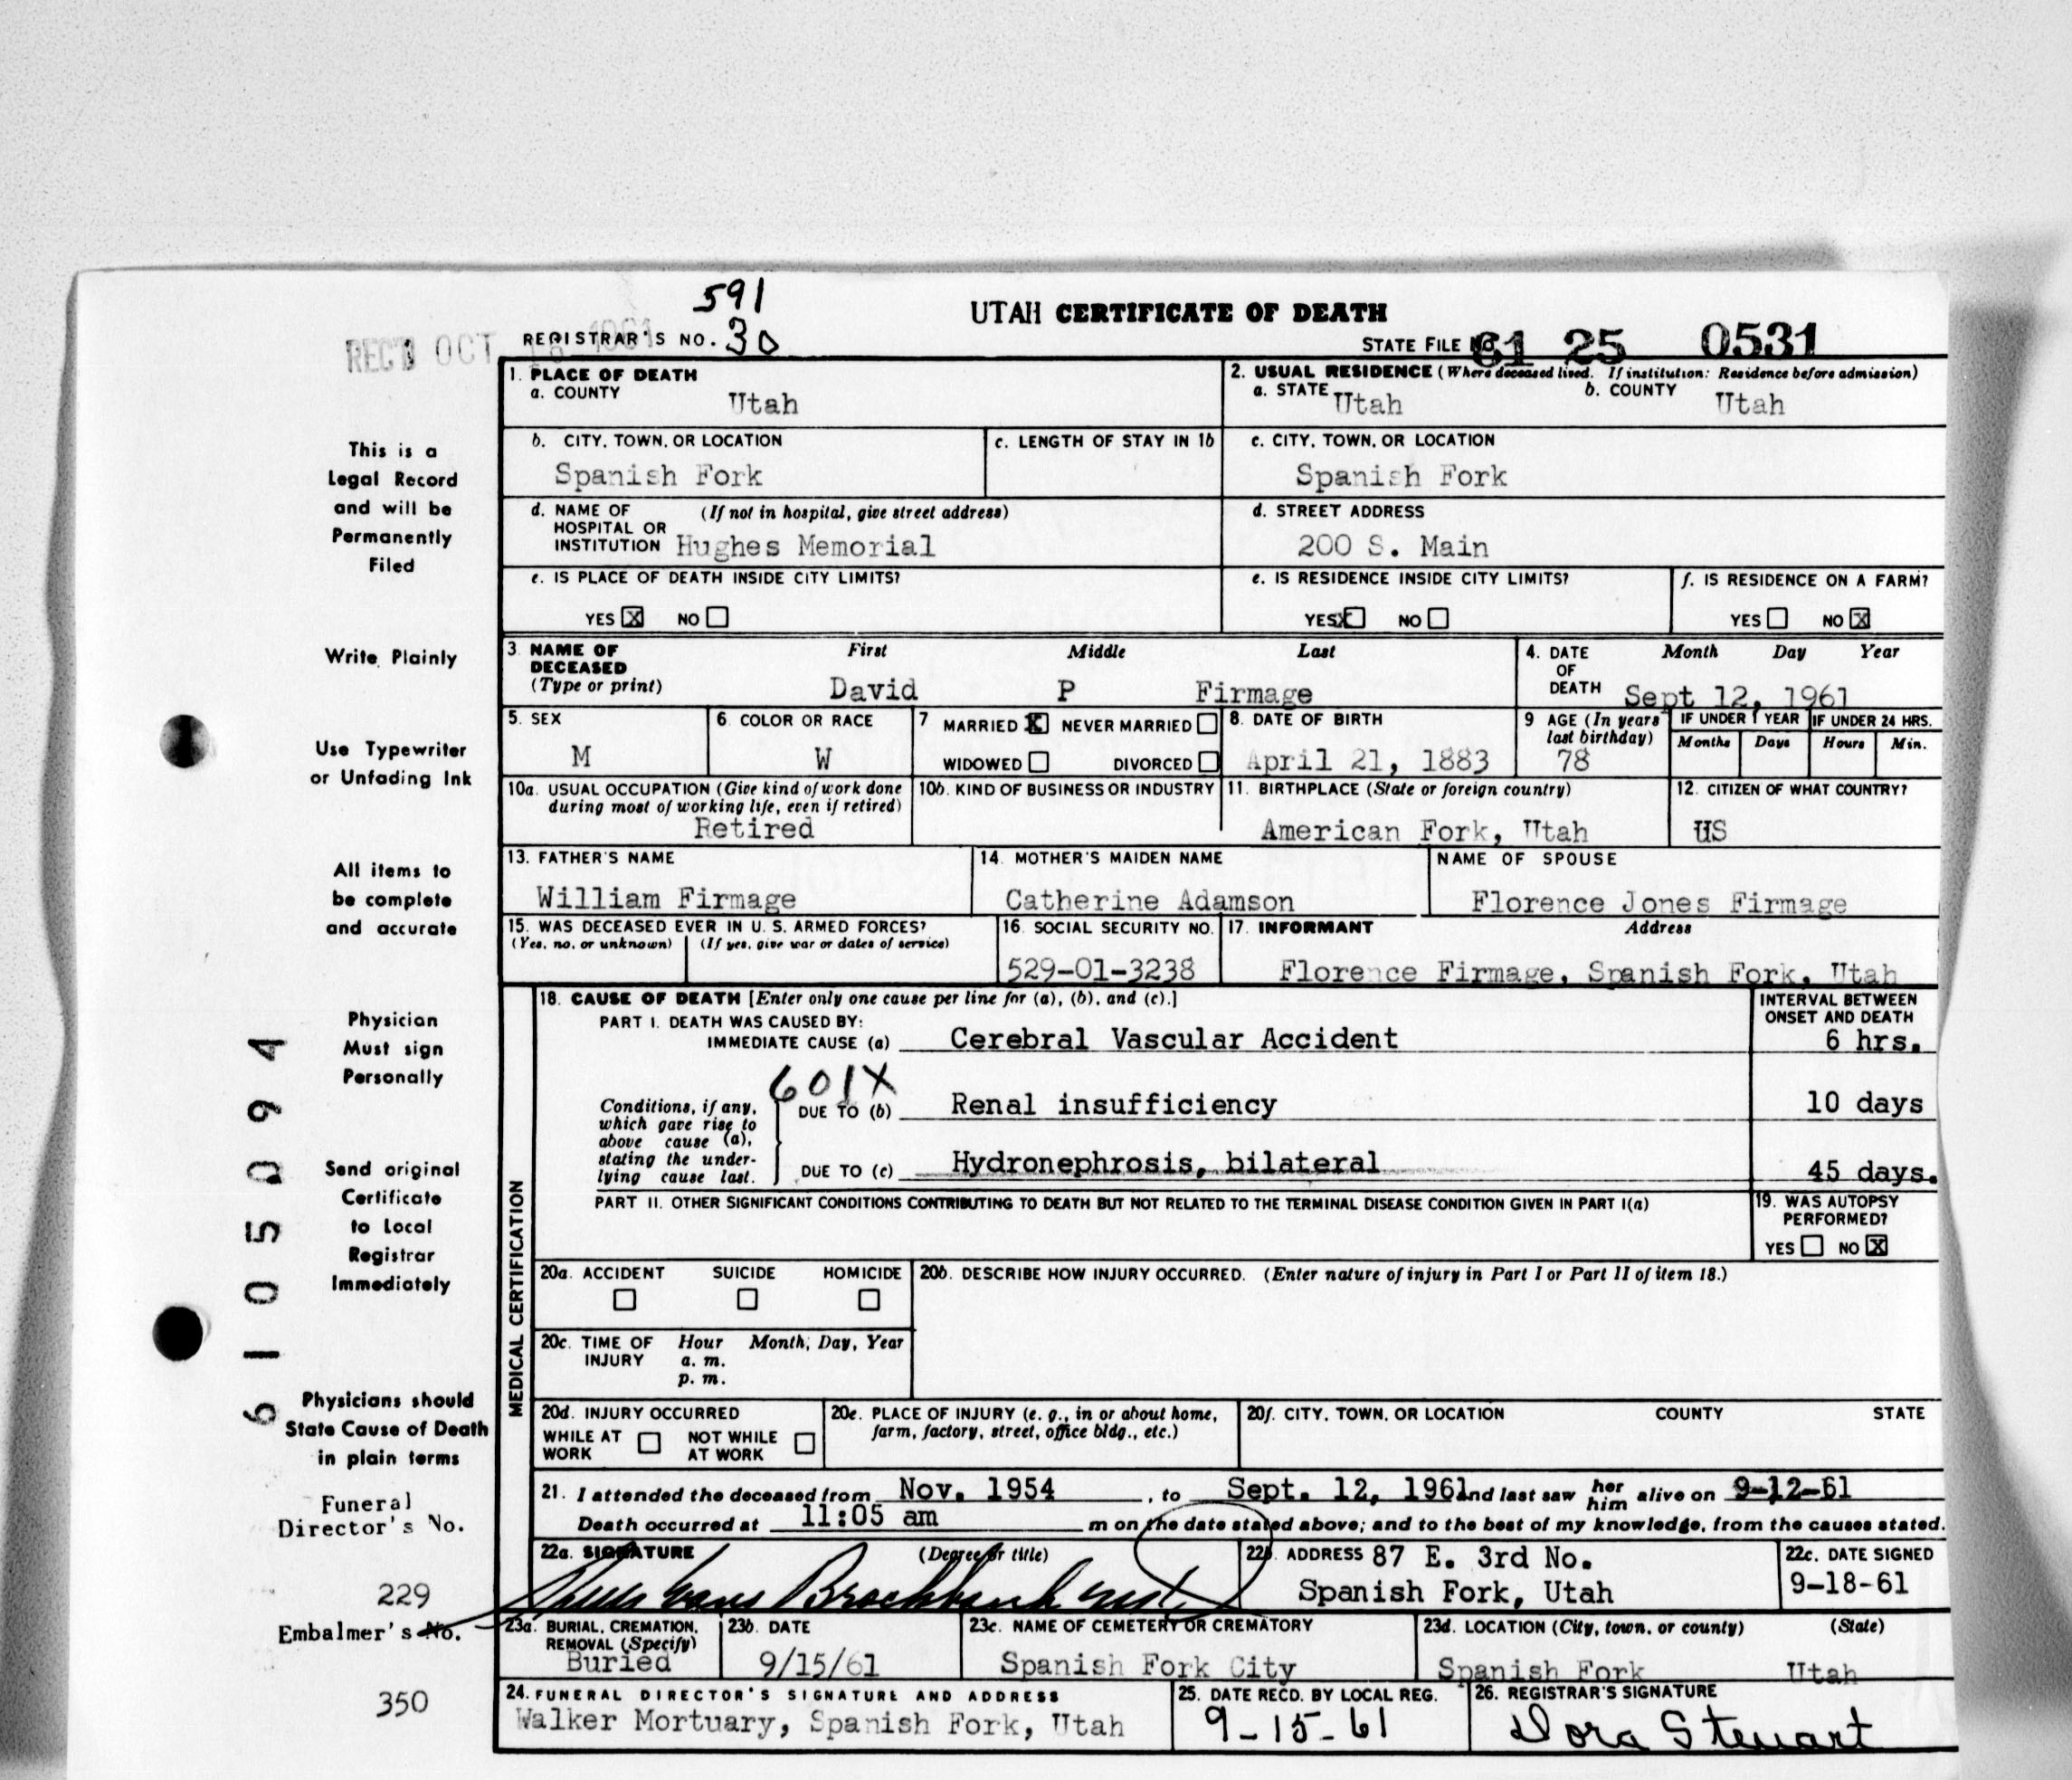 591
UTAH CERTIFICATE OF DEATH
REC'D OCT 1961
REGISTRAR'S NO. 30
STATE FILE NO. 61 25 0531
1. PLACE OF DEATH
a. COUNTY Utah
2. USUAL RESIDENCE (Where deceased lived. If institution: Residence before admission)
a. STATE Utah b. COUNTY Utah
b. CITY, TOWN, OR LOCATION Spanish Fork
c. LENGTH OF STAY IN 1b
c. CITY, TOWN, OR LOCATION Spanish Fork
d. NAME OF HOSPITAL OR INSTITUTION (If not in hospital, give street address) Hughes Memorial
d. STREET ADDRESS 200 S. Main
e. IS PLACE OF DEATH INSIDE CITY LIMITS? YES X NO
e. IS RESIDENCE INSIDE CITY LIMITS? YES X NO
f. IS RESIDENCE ON A FARM? YES NO X
3. NAME OF DECEASED (Type or print) First Middle Last
David P Firmage
4. DATE OF DEATH Month Day Year
Sept 12, 1961
5. SEX M
6. COLOR OR RACE W
7 MARRIED X NEVER MARRIED
WIDOWED DIVORCED
8. DATE OF BIRTH April 21, 1883
9 AGE (In years last birthday) 78
IF UNDER 1 YEAR Months Days
IF UNDER 24 HRS. Hours Min.
10a. USUAL OCCUPATION (Give kind of work done during most of working life, even if retired) Retired
10b. KIND OF BUSINESS OR INDUSTRY
11. BIRTHPLACE (State or foreign country) American Fork, Utah
12. CITIZEN OF WHAT COUNTRY? US
13. FATHER'S NAME William Firmage
14. MOTHER'S MAIDEN NAME Catherine Adamson
NAME OF SPOUSE Florence Jones Firmage
15. WAS DECEASED EVER IN U. S. ARMED FORCES?
(Yes, no, or unknown) (If yes, give war or dates of service)
16. SOCIAL SECURITY NO. 529-01-3238
17. INFORMANT Address
Florence Firmage, Spanish Fork, Utah
MEDICAL CERTIFICATION
18. CAUSE OF DEATH [Enter only one cause per line for (a), (b), and (c).]
INTERVAL BETWEEN ONSET AND DEATH
PART I. DEATH WAS CAUSED BY:
IMMEDIATE CAUSE (a) Cerebral Vascular Accident 6 hrs.
601X
Conditions, if any, which gave rise to above cause (a), stating the underlying cause last.
DUE TO (b) Renal insufficiency 10 days
DUE TO (c) Hydronephrosis, bilateral 45 days.
PART II. OTHER SIGNIFICANT CONDITIONS CONTRIBUTING TO DEATH BUT NOT RELATED TO THE TERMINAL DISEASE CONDITION GIVEN IN PART I(a)
19. WAS AUTOPSY PERFORMED? YES NO X
20a. ACCIDENT SUICIDE HOMICIDE
20b. DESCRIBE HOW INJURY OCCURRED. (Enter nature of injury in Part I or Part II of item 18.)
20c. TIME OF INJURY Hour Month, Day, Year
a. m.
p. m.
20d. INJURY OCCURRED
WHILE AT WORK NOT WHILE AT WORK
20e. PLACE OF INJURY (e. g., in or about home, farm, factory, street, office bldg., etc.)
20f. CITY, TOWN, OR LOCATION COUNTY STATE
21. I attended the deceased from Nov. 1954, to Sept. 12, 1961 and last saw her him alive on 9-12-61
Death occurred at 11:05 am m on the date stated above; and to the best of my knowledge, from the causes stated.
22a. SIGNATURE (Degree or title)
Brockbank
22b. ADDRESS 87 E. 3rd No.
Spanish Fork, Utah
22c. DATE SIGNED
9-18-61
23a. BURIAL, CREMATION, REMOVAL (Specify) Buried
23b. DATE 9/15/61
23c. NAME OF CEMETERY OR CREMATORY Spanish Fork City
23d. LOCATION (City, town, or county) (State)
Spanish Fork Utah
24. FUNERAL DIRECTOR'S SIGNATURE AND ADDRESS
Walker Mortuary, Spanish Fork, Utah
25. DATE RECD. BY LOCAL REG.
9-15-61
26. REGISTRAR'S SIGNATURE
Dora Stewart
This is a
Legal Record
and will be
Permanently
Filed
Write Plainly
Use Typewriter
or Unfading Ink
All items to
be complete
and accurate
Physician
Must sign
Personally
Send original
Certificate
to Local
Registrar
Immediately
Physicians should
State Cause of Death
in plain terms
Funeral
Director's No.
229
Embalmer's No.
350
6105094